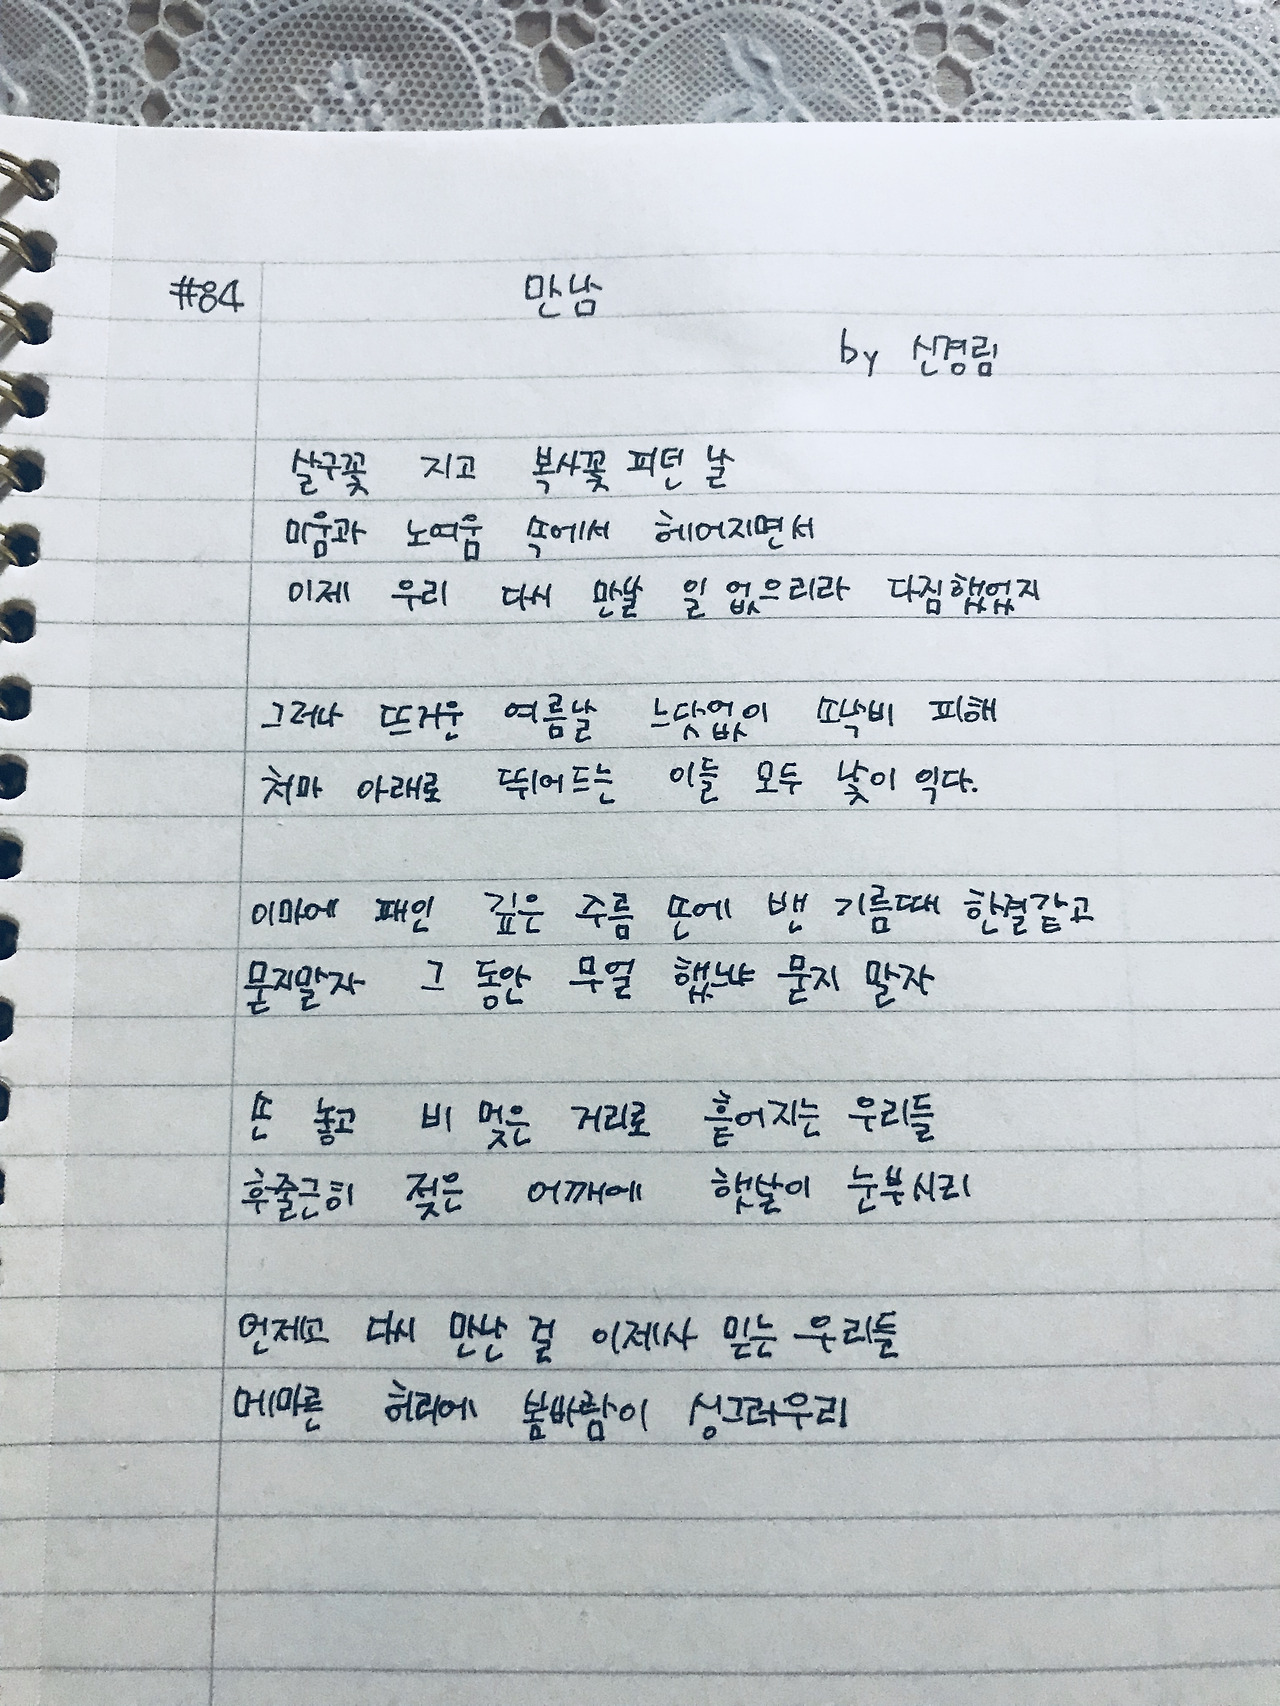 #84 만남
by 신경림
살구꽃 지고 복사꽃 피던 날
미움과 노여움 속에서 헤어지면서
이제 우리 다시 만날 일 없으리라 다짐했었지
그러나 뜨거운 여름날 느닷없이 소낙비 피해
처마 아래로 뛰어드는 이들 모두 낯이 익다.
이마에 패인 깊은 주름 손에 밴 기름때 한결같고
묻지말자 그 동안 무얼 했느냐 묻지 말자
손 놓고 비 멎은 거리로 흩어지는 우리들
후줄근히 젖은 어깨에 햇살이 눈부시리
언제고 다시 만난 걸 이제사 믿는 우리들
메마른 허리에 봄바람이 싱그러우리